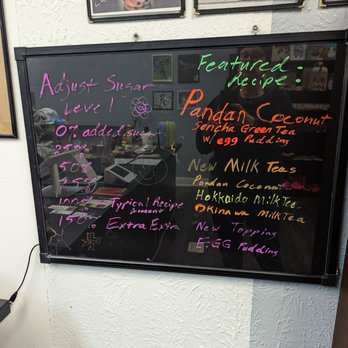 Adjust Sugar
Level
0% added sugar
25%
50%
75%
100% Typical Recipe
amount
150% Extra Extra
Featured
Recipe:
Pandan Coconut
Sencha Green Tea
w/ egg Pudding
New Milk Teas
Pandan Coconut
Hokkaido Milk Tea
Okinawa Milk Tea
New Topping
EGG Pudding